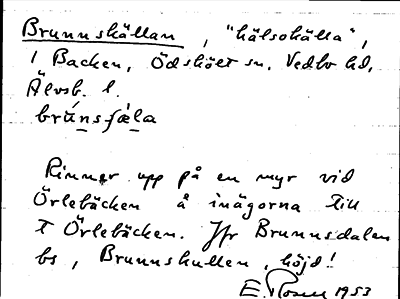 Brunnskällan, "hälsokälla",
i Backen, Ödskölt sn, Vedbo hd,
Älvsb. l.
brúnsʃɛ́la
Rinner upp på en myr vid
Örlebäcken å inägorna till
t Örlebäcken. Jfr Brunnsdalen
bs, Brunnskullen, höjd!
E. Rosen 1953